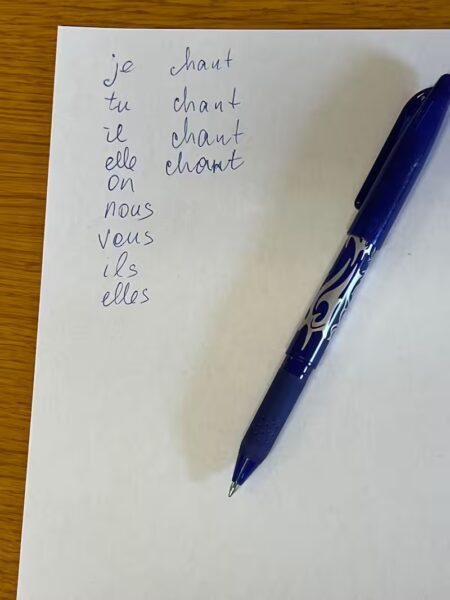 je chant
tu chant
il chant
elle chant
on
nous
vous
ils
elles